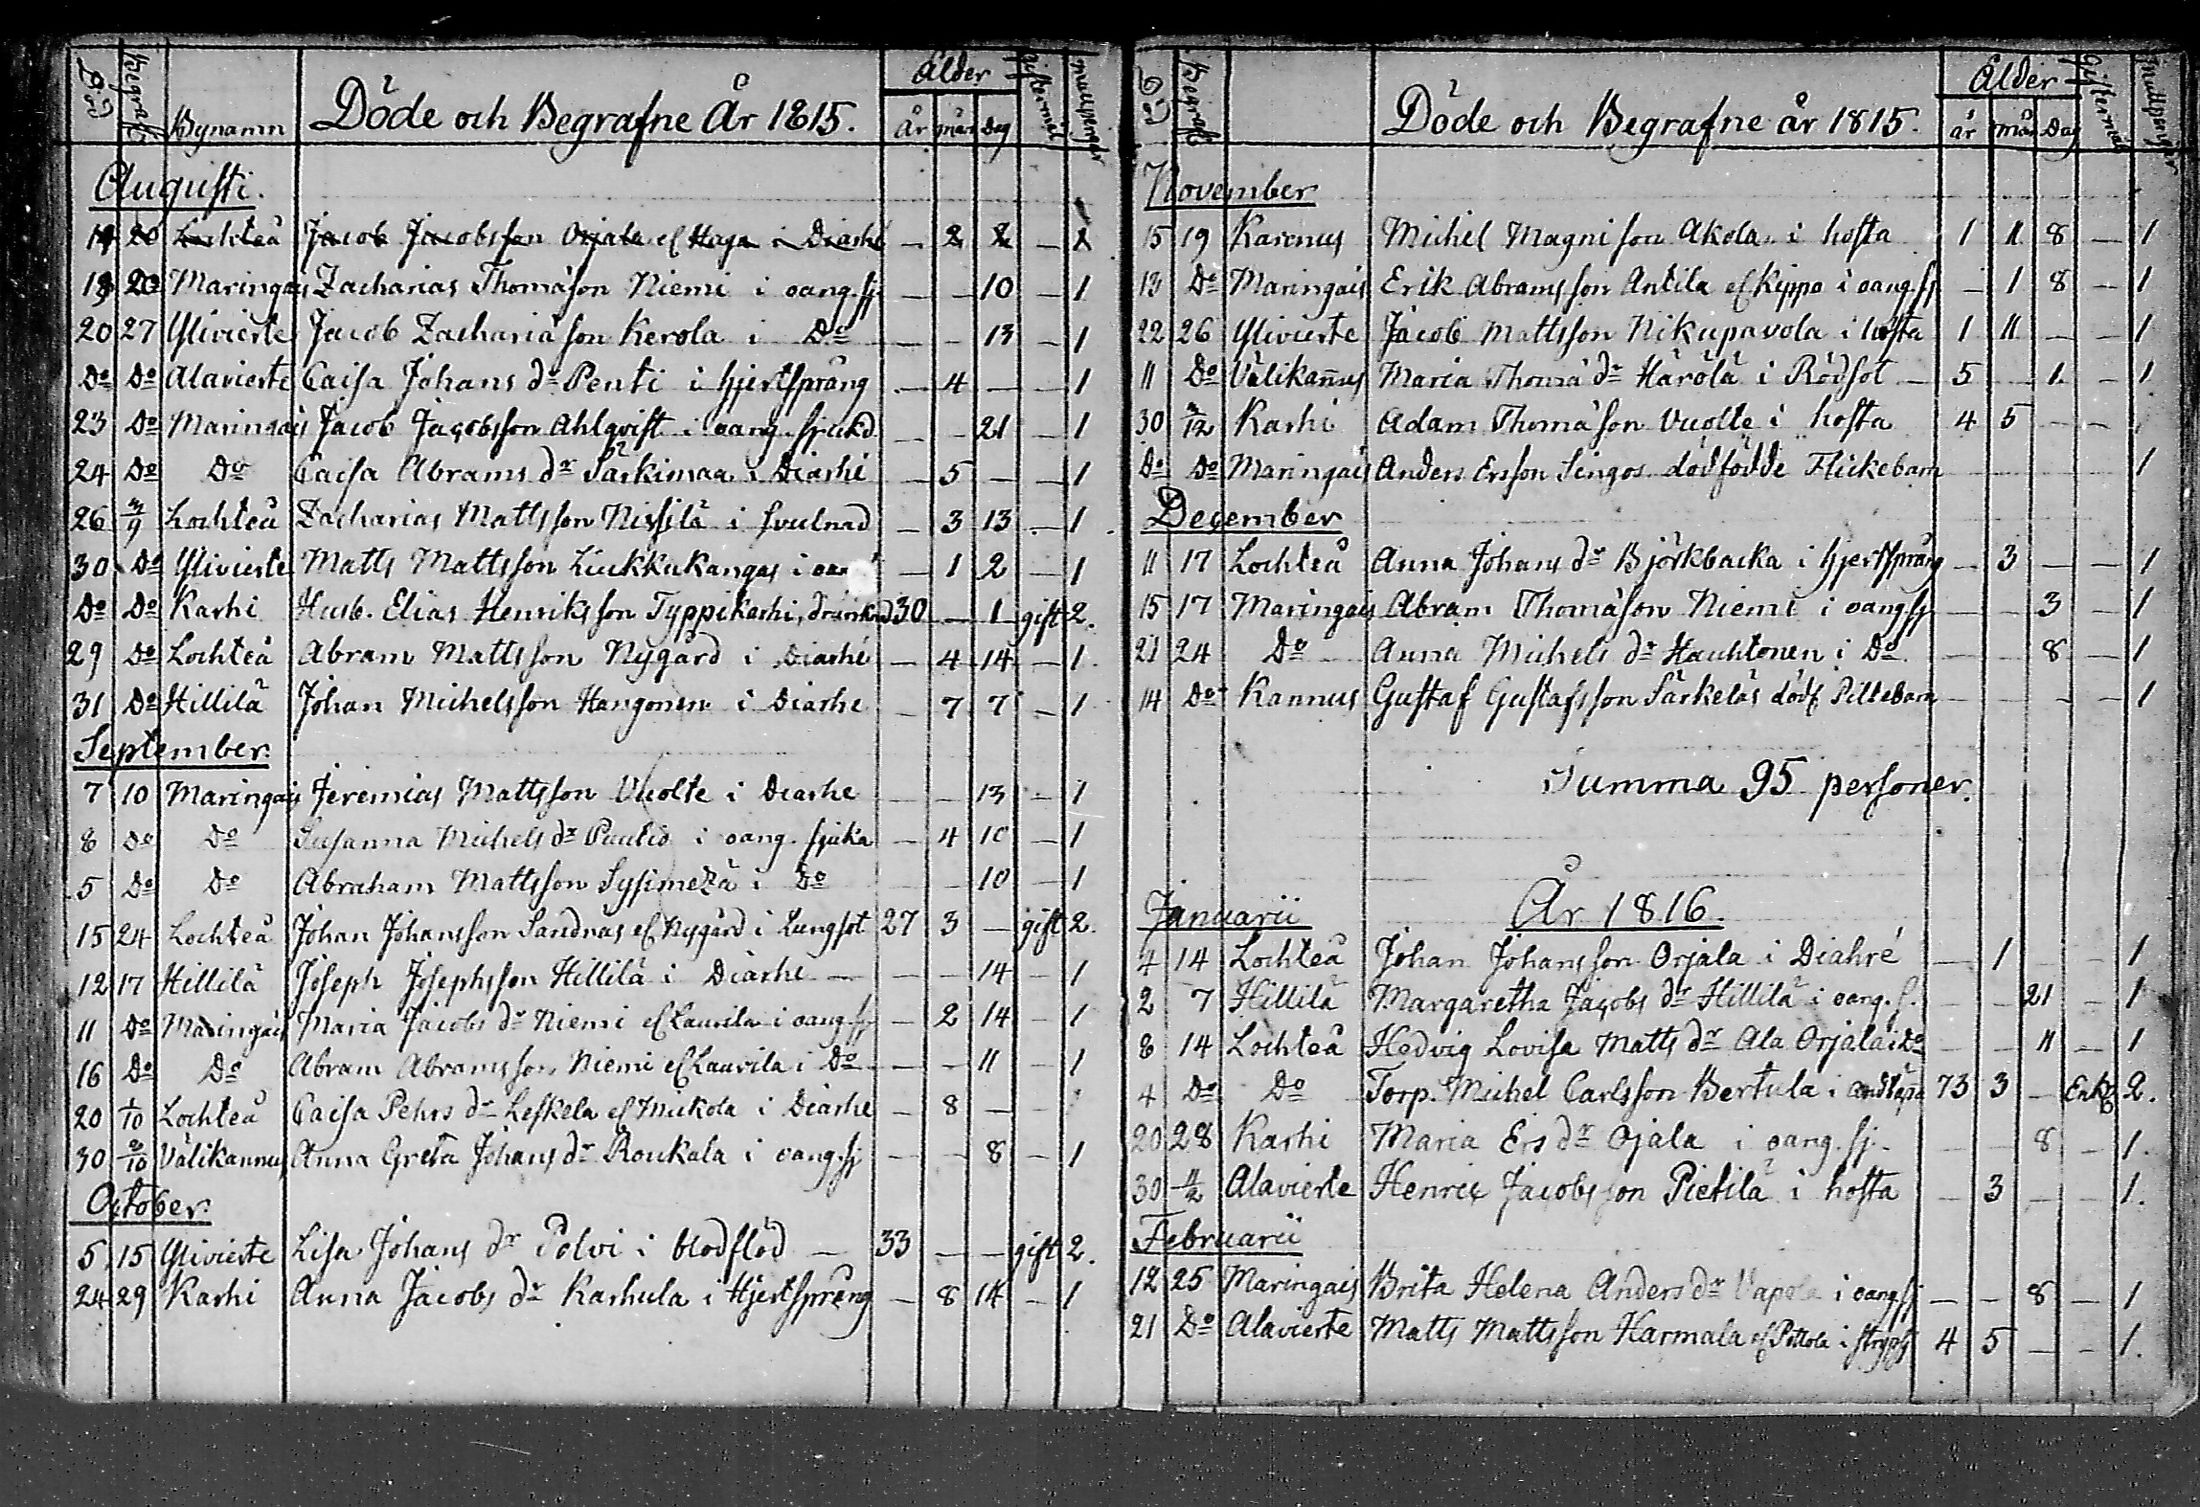 Död Begrafd Bynamn Döde och Begrafne År 1815. Ålder år mån Dag Giftermål mullpengar
Augusti.
14 20 Lochteå Jacob Jacobsson Orjala el Haga i Diarhé — 2 2 — 1
19 20 Maringais Zacharias Thomasson Niemi i oang. sj — — 10 — 1
20 27 Ylivierte Jacob Zachariæsson Kerola i Do — — 13 — 1
Do Do Alavierte Caisa Johans dr Penti i hjertsprång — 4 — — 1
23 Do Maringais Jacob Jacobsson Ahlqvist i oang. sjukd — — 21 — 1
24 Do Do Caisa Abrams dr Särkimaa i Diarhé — 5 — — 1
26 3/9 Lochteå Zacharias Mattsson Nissilä i svulnad — 3 13 — 1
30 Do Ylivierte Matts Mattsson Liukkukangas i — 1 2 — 1
Do Do Karhi Husb. Elias Henriksson Typpikarhi, drunknad 30 — 1 gift 2.
29 Do Lochteå Abram Mattsson Nygård i Diarhé — 4 14 — 1.
31 Do Hillilä Johan Michelsson Hangonen i Diarhé — 7 7 — 1
September.
7 10 Maringais Jeremias Mattsson Vuolte i Diarhe — — 13 — 1
8 Do Do Susanna Michels dr Pautio i oang. sjuka — 4 10 — 1
5 Do Do Abraham Mattsson Sysimezä i Do — — 10 — 1
15 24 Lochteå Johan Johansson Sandnäs el Nygård i Lungsot 27 3 — gift 2.
12 17 Hillilä Joseph Josephsson Hillilä i Diarhe — — — 14 — 1
11 Do Maringais Maria Jacobs dr Niemi el Laurila i oang. sj — 2 14 — 1
16 Do Do Abram Abramsson Niemi el Laurila i Do — — 11 — 1
20 1/10 Lochteå Caisa Pehrs dr Leskela el Mickola i Diarhe — 8 — — 1
30 8/10 Välikannus Anna Greta Johans dr Roukala i oang. sj — — 8 — 1
October.
5 15 Ylivierte Lisa Johans dr Polvi i blodflöd — 33 — — gift 2.
24 29 Karhi Anna Jacobs dr Karhula i Hjertsprång — 8 14 — 1
Död Begrafd Döde och Begrafne år 1815. Ålder år mån Dag Giftermål mullpengar
November
15 19 Kannus Michel Magnisson Akola i hosta 1 11 8 — 1
13 Do Maringais Erik Abramsson Antila el Kippo i oang. sj — 1 8 — 1
22 26 Ylivierte Jacob Mattsson Nikupavola i hosta 1 11 — — 1
11 Do Välikannus Maria Thomæ dr Härölä i Rödsot — 5 — 1 — 1
30 3/12 Karhi Adam Thomæson Vuolle i hosta 4 5 — — 1
Do Do Maringais Anders Ersson Singos dödfödde Flickebarn 1
December
11 17 Lochteå Anna Johans dr Björkbacka i hjertsprång — 3 — — 1
15 17 Maringais Abram Thomæson Niemi i oang. sj — — 3 — 1
21 24 Do Anna Michels dr Hauhtonen i Do — — 8 — 1
14 Do Kannus Gustaf Gustafsson Särkeläs dödf Piltebarn — — — — 1
Summa 95 personer.
År 1816.
Januarii
4 14 Lochteå Johan Johansson Orjala i Diahré — 1 — — 1
2 7 Hillilä Margaretha Jacobs dr Hillilä i oang. s. — — 21 — 1
8 14 Lochteå Hedvig Lovisa Matts dr Ala Orjala i Do — — 11 — 1
4 Do Do Torp. Michel Carlsson Bertula i andtäpa 73 3 — Enkl 2.
20 28 Karhi Maria Ers dr Ojala i oang. sj. — — 8 — 1.
30 11/2 Alavierte Henric Jacobsson Pietilä i hosta — 3 — — 1.
Februarii
12 25 Maringais Brita Helena Anders dr Vapola i oang. sj — — 8 — 1
21 Do Alavierte Matts Mattsson Harmala el Pottola i stryps 4 5 — — 1.